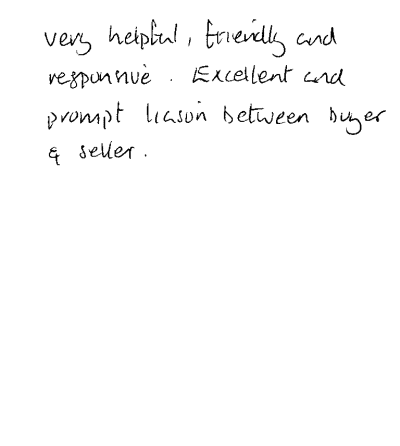 very helpful, friendly and
responsive. Excellent and
prompt liason between buyer
& seller.